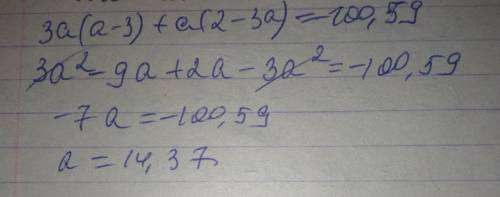 3a(a-3)+a(2-3a)=-100,59
3a²-9a+2a-3a²=-100,59
-7a=-100,59
a=14,37